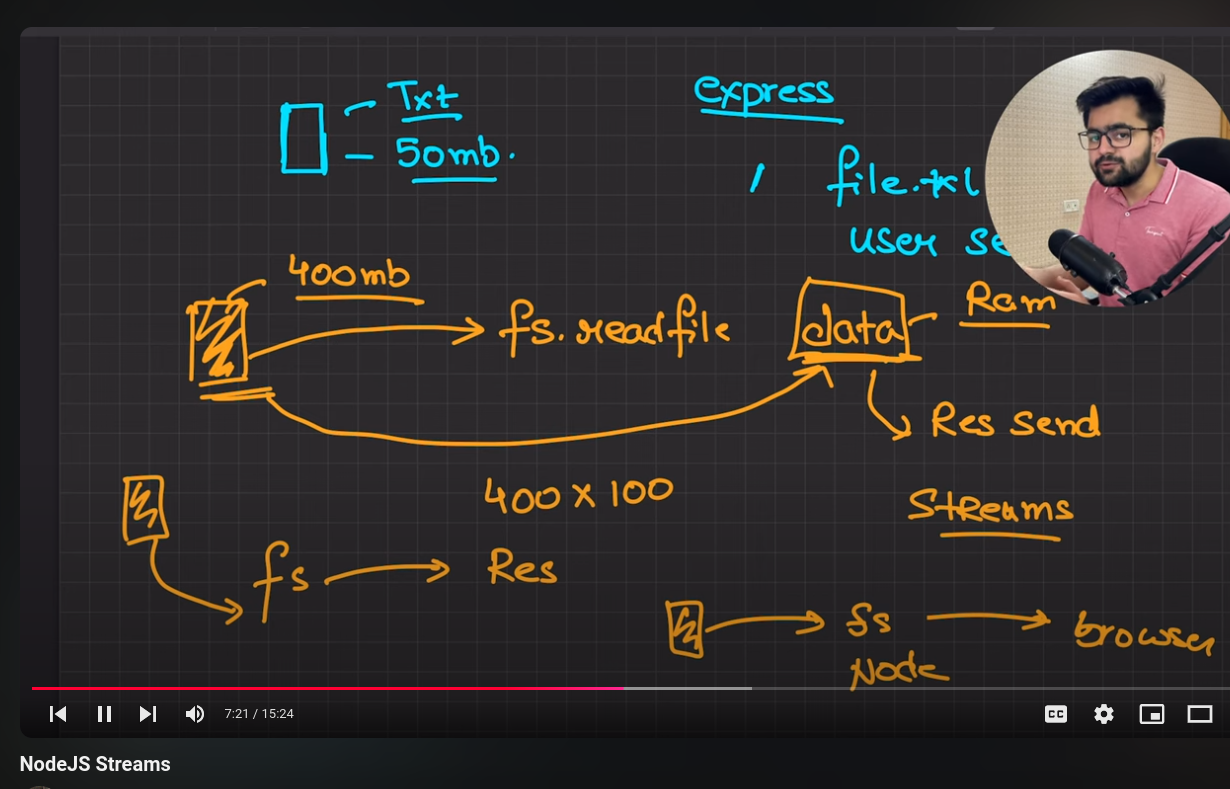 Txt
50mb.
express
/ file.txt
user se
400mb
fs.readfile
data
Ram
Res send
400 x 100
Streams
fs
Res
fs
browser
Node
7:21 / 15:24
CC
NodeJS Streams